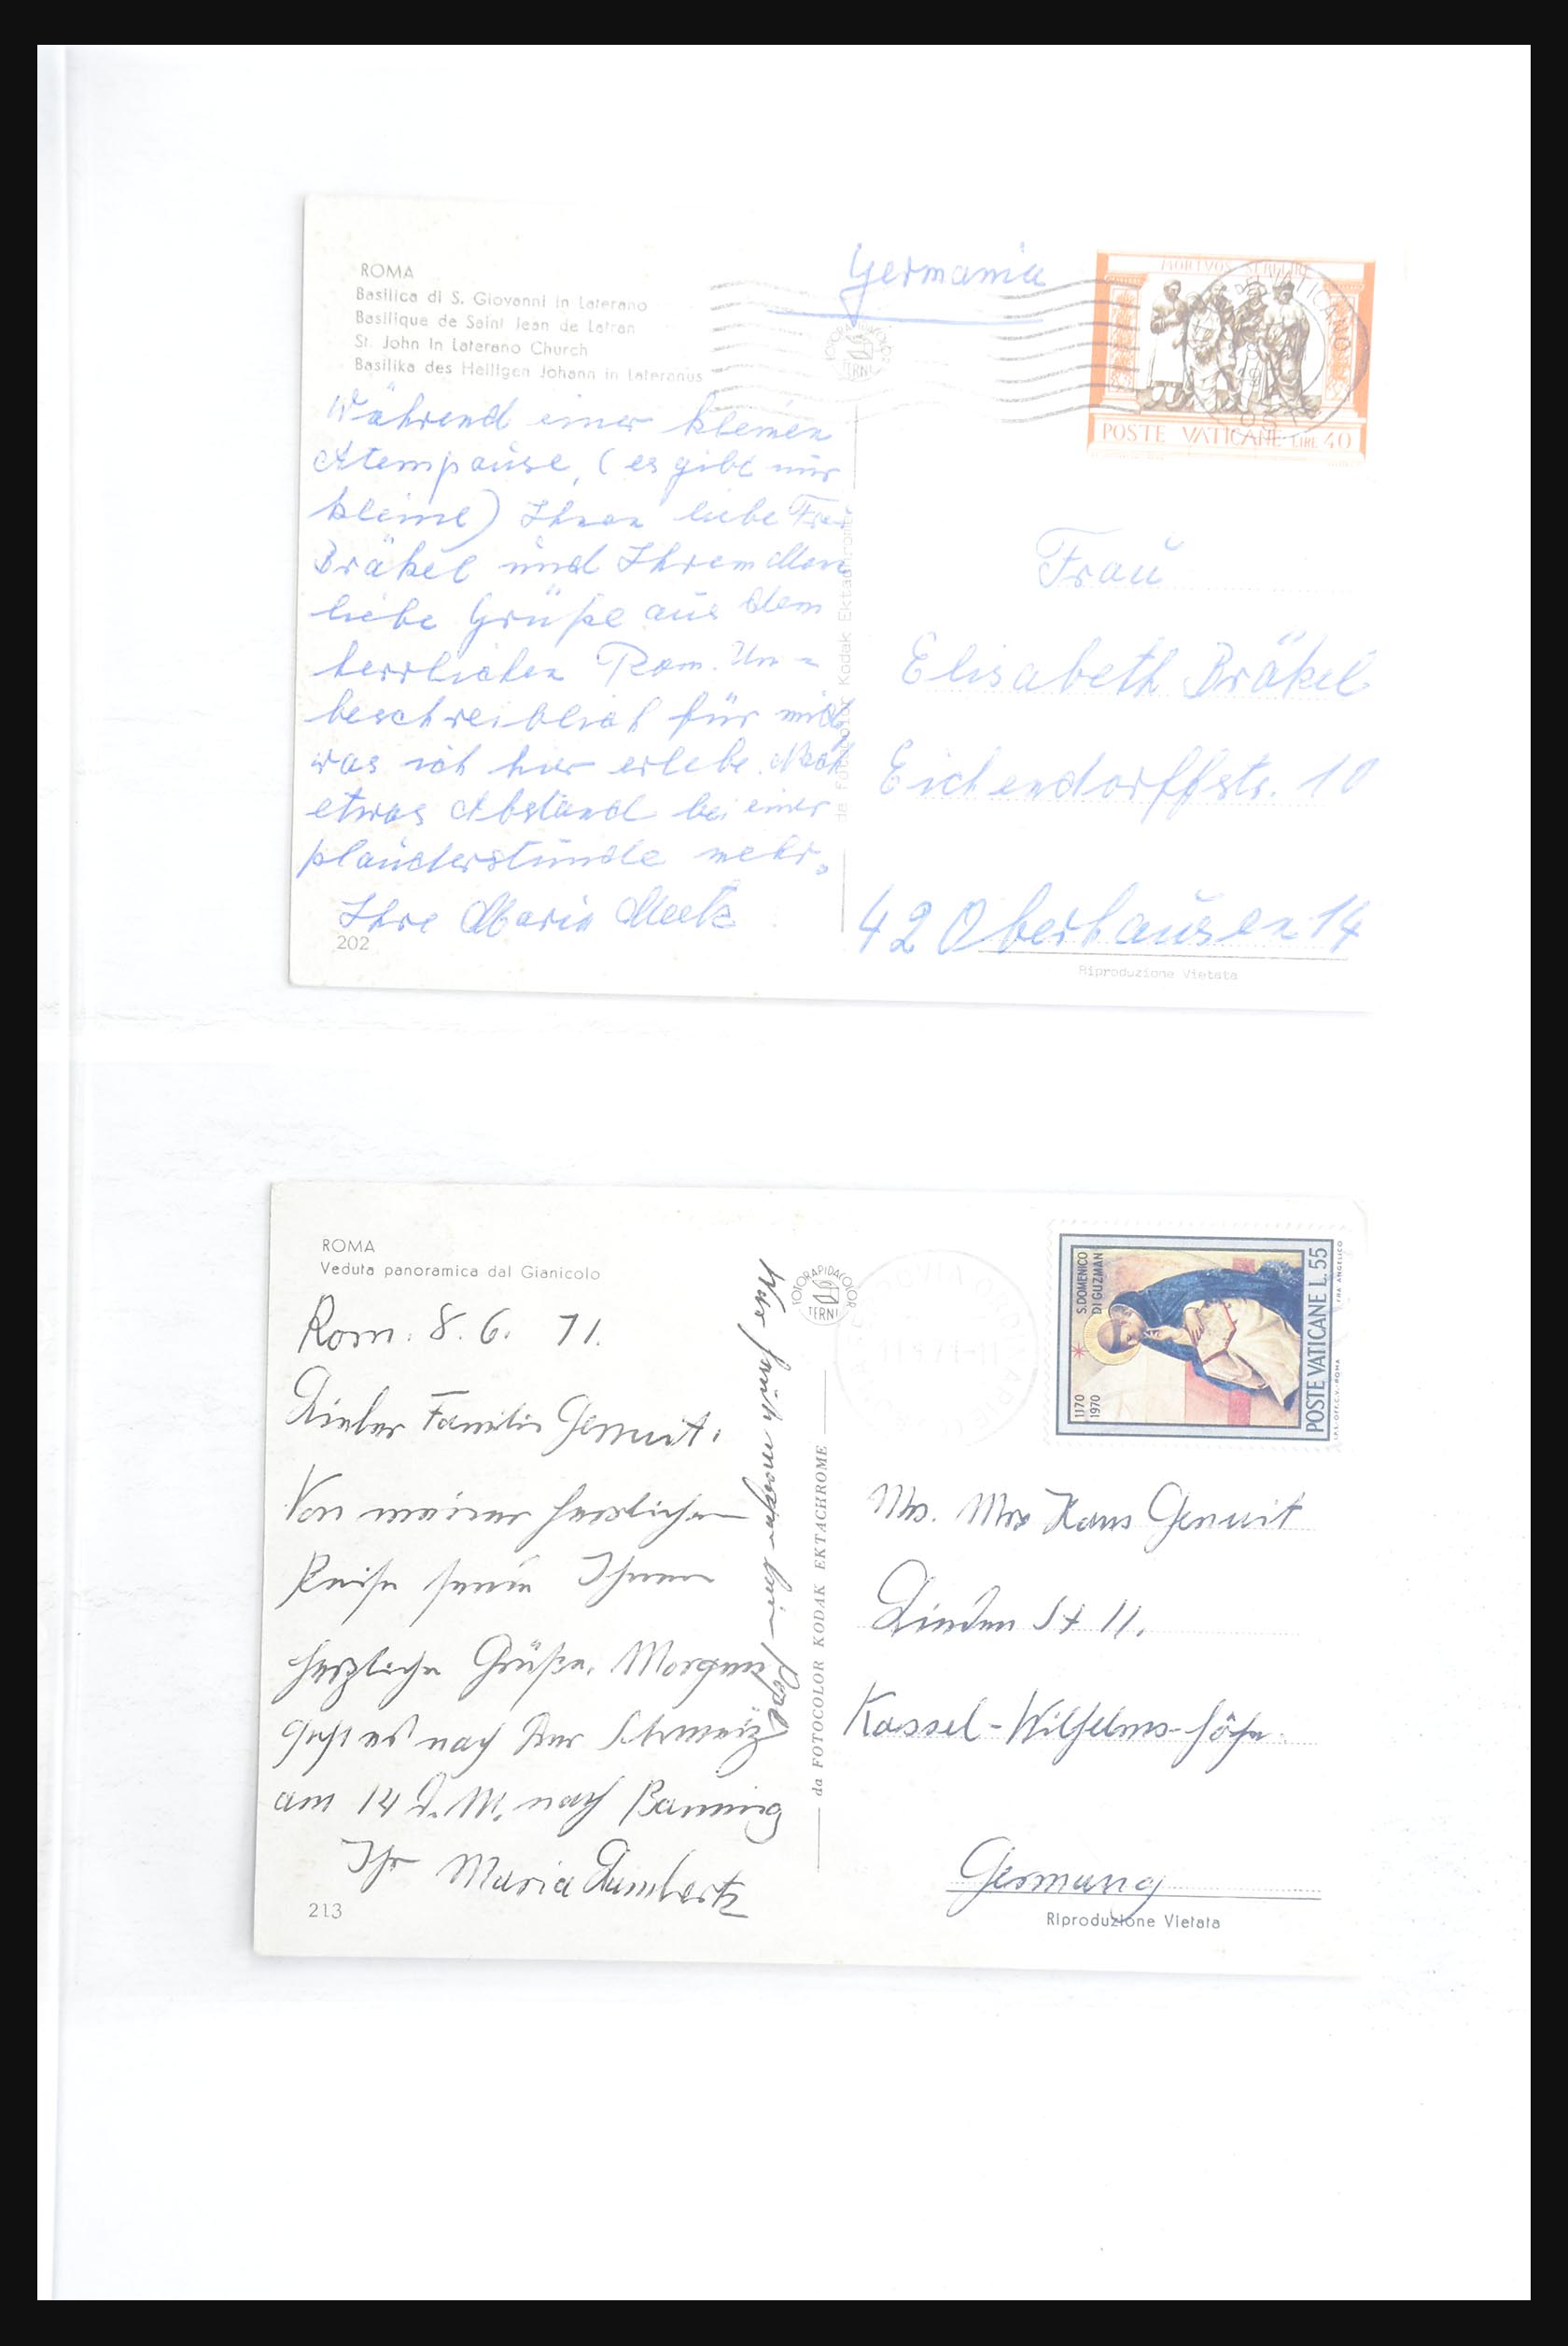 ROMA
Basilica di S. Giovanni in Laterano
Basilique de Saint Jean de Latran
St. John In Laterano Church
Basilika des Heiligen Johann in Lateranus
Während einer kleinen
Atempause, (es gibt nur
kleine) Ihnen liebe Frau
Bräkel und Ihrem Mann
liebe Grüße aus dem
herrlichen Rom. Un-
beschreiblich für mich
was ich hier erlebe. Nach
etwas Abstand bei einer
plauderstunde mehr.
Ihre Maria
202
Germania
FOTORAPIDACOLOR
TERNI
da Fotocolor Kodak Ektachrome
MORTVOS SEPELIRE
POSTE VATICANE LIRE 40
Frau
Elisabeth Bräkel
Eichendorffstr. 10
42 Oberhausen 14
Riproduzione Vietata
ROMA
Veduta panoramica dal Gianicolo
Rom. 8. 6. 71.
Familie Genuit.
Von meiner herrlichen
Reise sende Ihnen
herzliche Grüße. Morgen
geht es nach der Schweiz
am 14 d. M. nach Banning
Ihr Maria Lambertz
213
War heute morgen beim Papst
FOTORAPIDACOLOR
TERNI
da FOTOCOLOR KODAK EKTACHROME
S. DOMENICO
DI GUZMAN
1170
1970
POSTE VATICANE L. 55
FRA ANGELICO
I.P.S.-OFF. C.V.-ROMA
Mrs. Mrs Hans Genuit
Linden St 11.
Kassel-Wilhelms-höhe.
Germany
Riproduzione Vietata